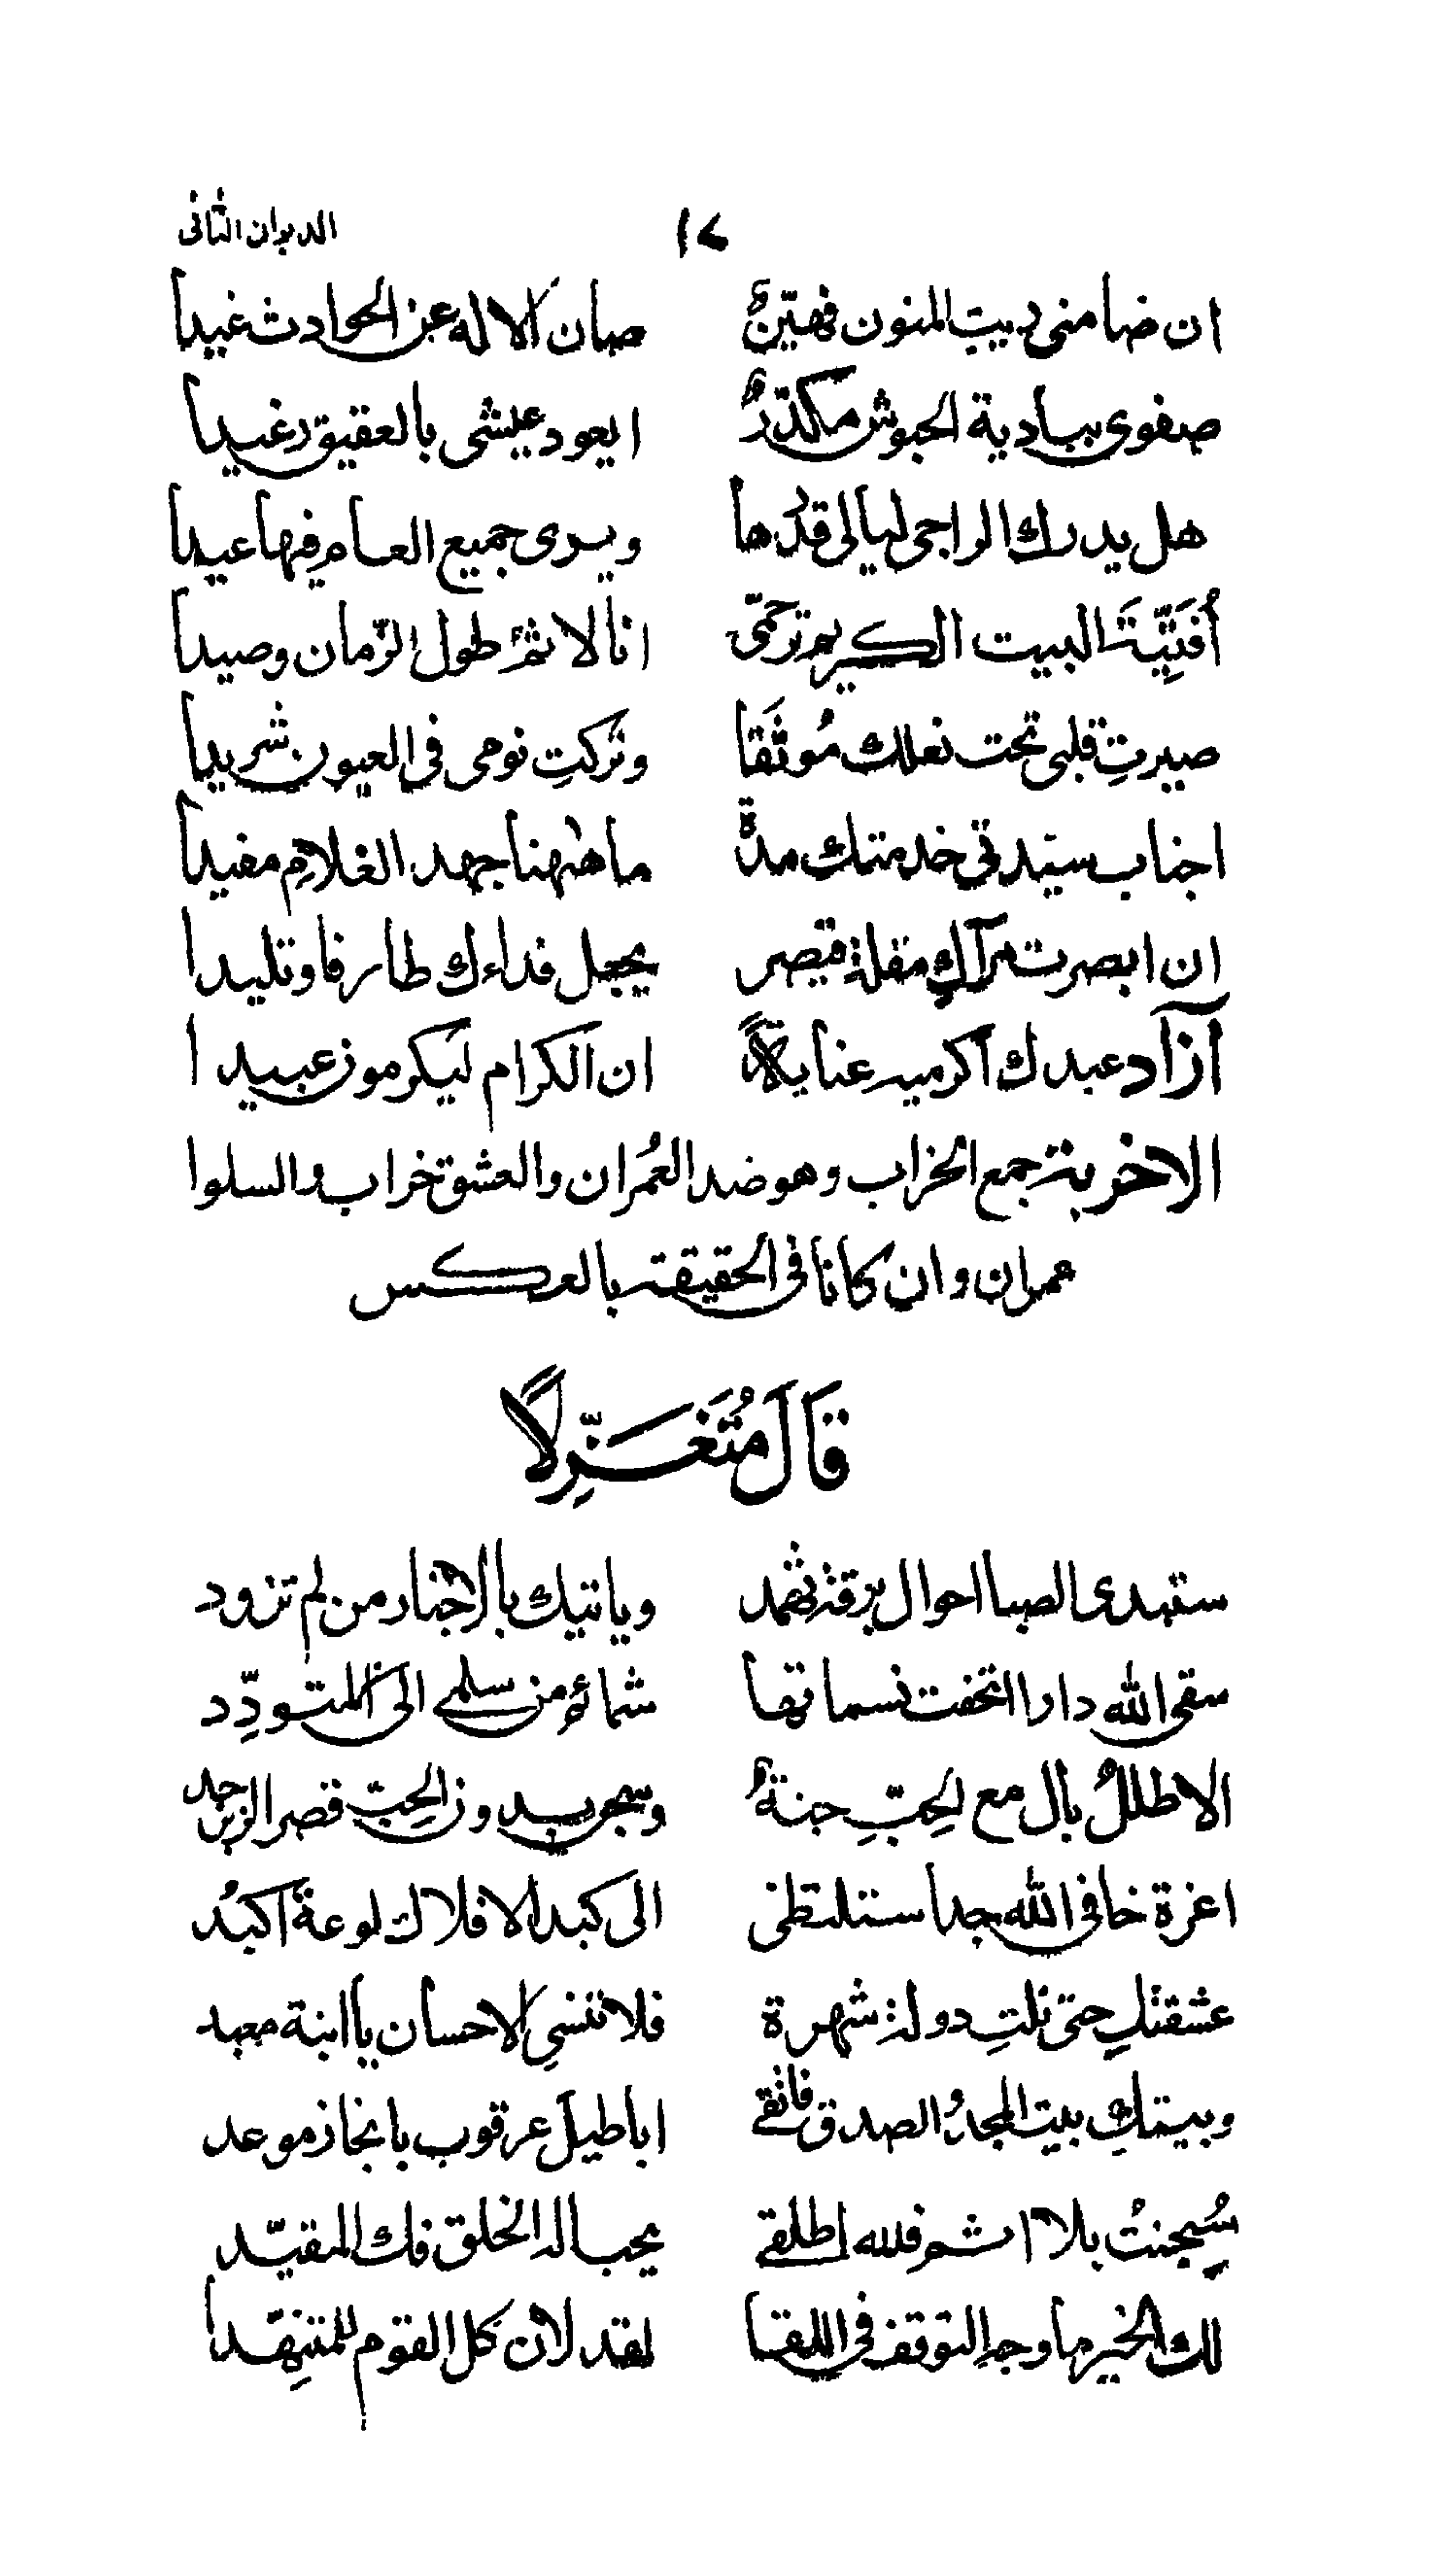 الديوان الثاني ١٧
ان ضامني ريب المنون فهيّنٌ صان الاله عن الحوادث غيدا
صفوي ببادية الحبوش مكدّرٌ ايعود عيشي بالعقيق رغيدا
هل يدرك الراجي ليالي قدرها ويرى جميع العام فيها عيدا
أفَتِيّةَ البيت الكريم ترحّمي انا لاثمٌ طول الزّمان وصيدا
صيرتِ قلبي تحت نعلك مُوثَقا وتركتِ نومي في العيون شريدا
اجناب سيّدتي خدمتك مدةً ما ههنا جهد الغلام مفيدا
ان ابصرت مرآكِ مقلة قيصر يجعل فداءك طارفا وتليدا
آزاد عبدك اكرميه عنايةً ان الكرام ليكرمون عبيدا
الاخربة جمع الخراب وهو ضد العُمران والعشق خراب والسلوا
عمران وان كانا في الحقيقة بالعكس
قَالَ مُتَغَزِّلًا
ستبدي الصبا احوال برقة ثهمد وياتيك بالاخبار من لم تزود
سقى الله دارا اتحفت نسماتها شمائم من سلمى الى المتودِّد
الا طللٌ بال مع الحِبِّ جنةٌ وسجن بدون الحِبّ قصر الزبرجد
اعزة خافي الله جدا ستلتظي الى كبد الافلاك لوعة اكبُد
عشقتكِ حتى نلتِ دولة شهرة فلا تنسي الاحسان يا ابنة معبد
وبيتكِ بيت المجد والصدق فاتقي اباطيل عرقوب بانجاز موعد
سُجنتُ بلا اثم فلله اطلقي يحب اله الخلق فك المقيّد
لك الخير ما وجه التوقف في اللقا لقد لان كل القوم للمتنهّد